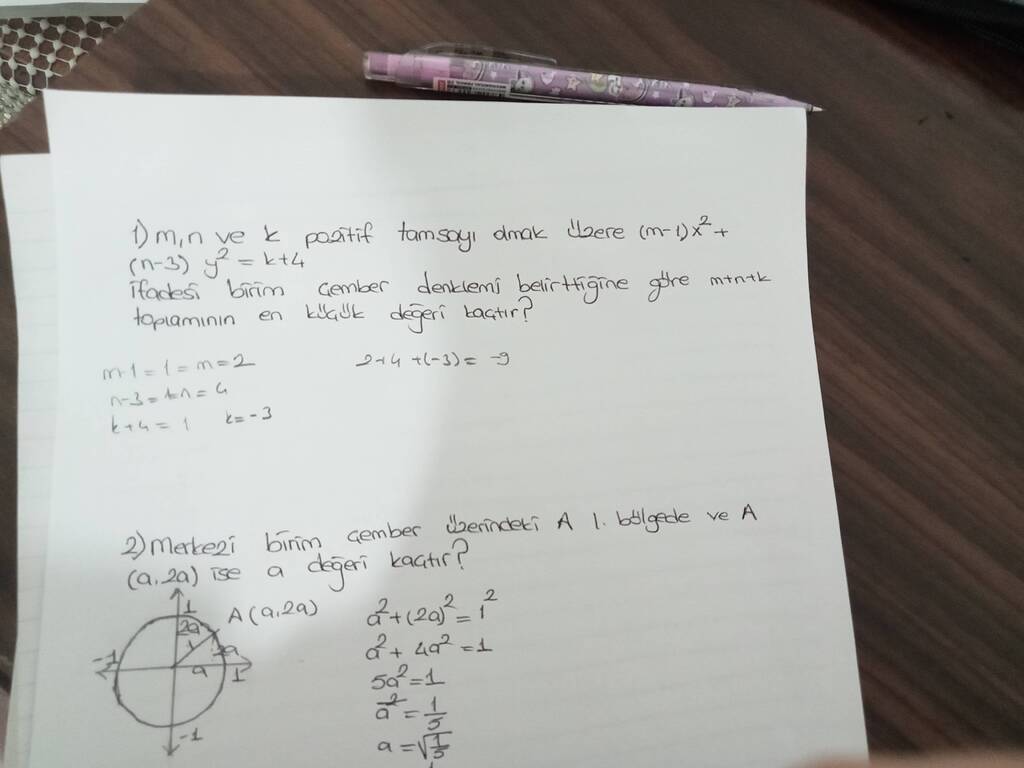 1) m,n ve k pozitif tamsayı olmak üzere (m-1)x² +
(n-3) y² = k+4
ifadesi birim çember denklemi belirttiğine göre m+n+k
toplamının en küçük değeri kaçtır?
m-1 = 1 = m = 2
2+4 +(-3) = -9
n-3 = 1 = n = 4
k+4 = 1 k = -3
2) Merkezi birim çember üzerindeki A 1. bölgede ve A
(a,2a) ise a değeri kaçtır?
1
A (a,2a)
2a
1
2a
-1
a
1
-1
a²+(2a)² = 1²
a² + 4a² = 1
5a² = 1
a² = 1/5
a = √1/5